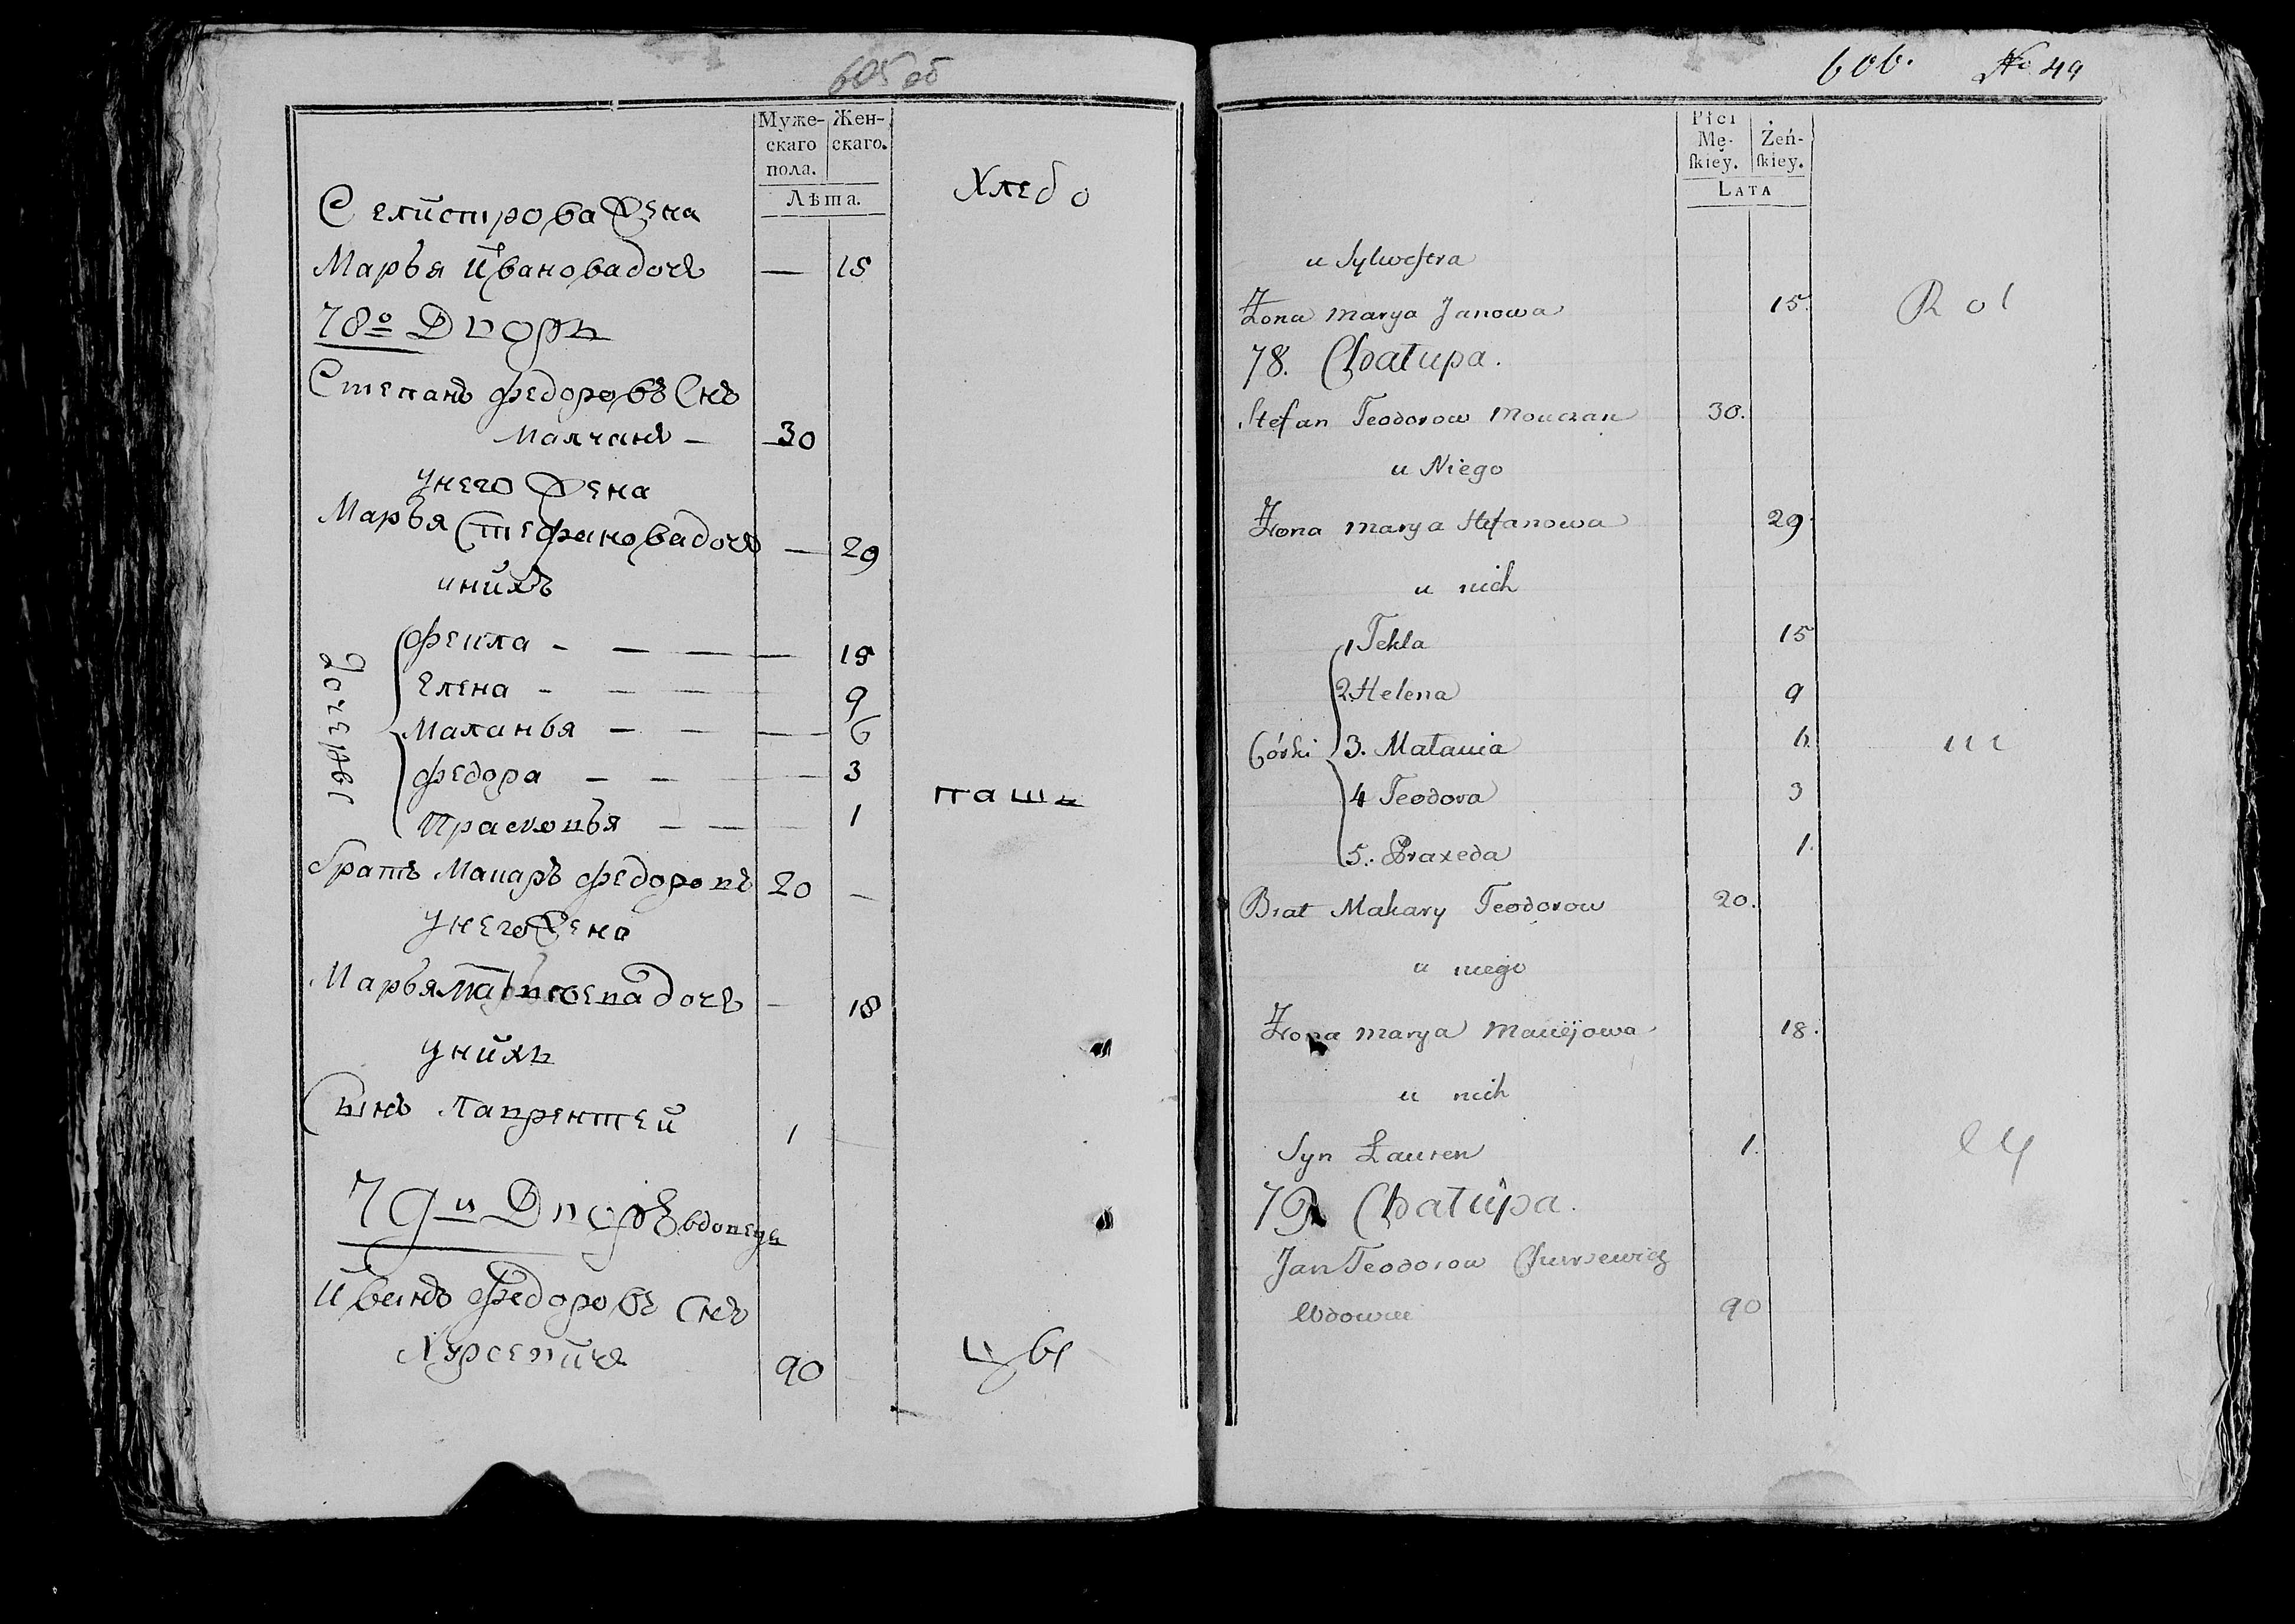 605 об
Муже-
скаго
пола.
Жен-
скаго.
Лѣта.
Хлебо
Селистрова Жена
Марья Ивановадочь — 15
78о Дворъ
Степанъ Федоровъ Снъ
Малчанъ — 30
унего Жена
Марья Стефановадочь — 29
унихъ
Дочери
Фекла — — — — 15
Елена — — — — 9
Маланья — — — 6
Федора — — — 3
Прасковья — — — 1
пашъ
братъ Макаръ Федоровъ 20 —
унего Жена
Марья Матвеевадочь — 18
унихъ
Сынъ Лаврентей 1
79й Дворъ вдовецъ
Иванъ Федоровъ Снъ
Хурсевичь 90
цы
606. No 49
Płci
Mę-
skiéy.
Żeń-
skiey.
LATA
u Sylwestra
Żona Marya Janowa 15.
Rol
78. Chałupa.
Stefan Teodorow Mouczan 30.
u Niego
Żona Marya Stefanowa 29.
u nich
Córki
1 Tekla 15
2 Helena 9
3. Małania 6.
ni
4 Teodora 3
5. Praxeda 1.
Brat Makary Teodorow 20.
u niego
Żona Marya Maciejowa 18.
u nich
Syn Łauren 1.
cy
79. Chałupa.
Jan Teodorow Chursewicz
Wdowiec 90